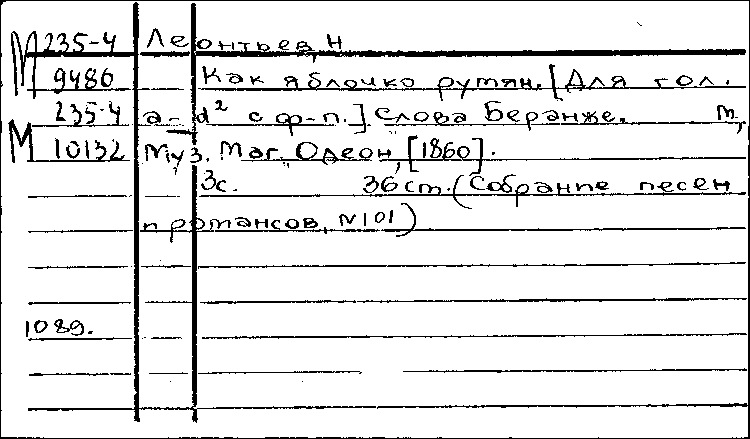 М 235-4 Леонтьев, Н
9486 Как яблочко румян. [Для гол.
235-4 a-d² с ф-п.] Слова Беранже. М,
М 10132 Муз. Маг. Одеон, [1860].
3с. 36 ст. (Собрание песен
и романсов, N101)
1089.